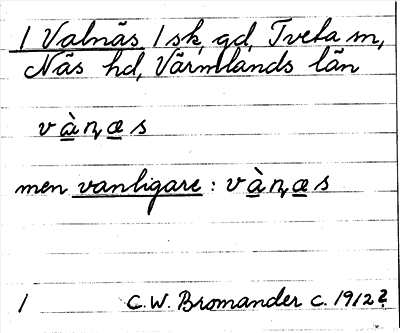 1 Valnäs 1 sk, gd, Tveta sn,
Näs hd, Värmlands län
v à̱ ꞃ æ̱ s
men vanligare: v à̱ ꞃ æ̱ s
1 C.W. Bromander c. 1912?